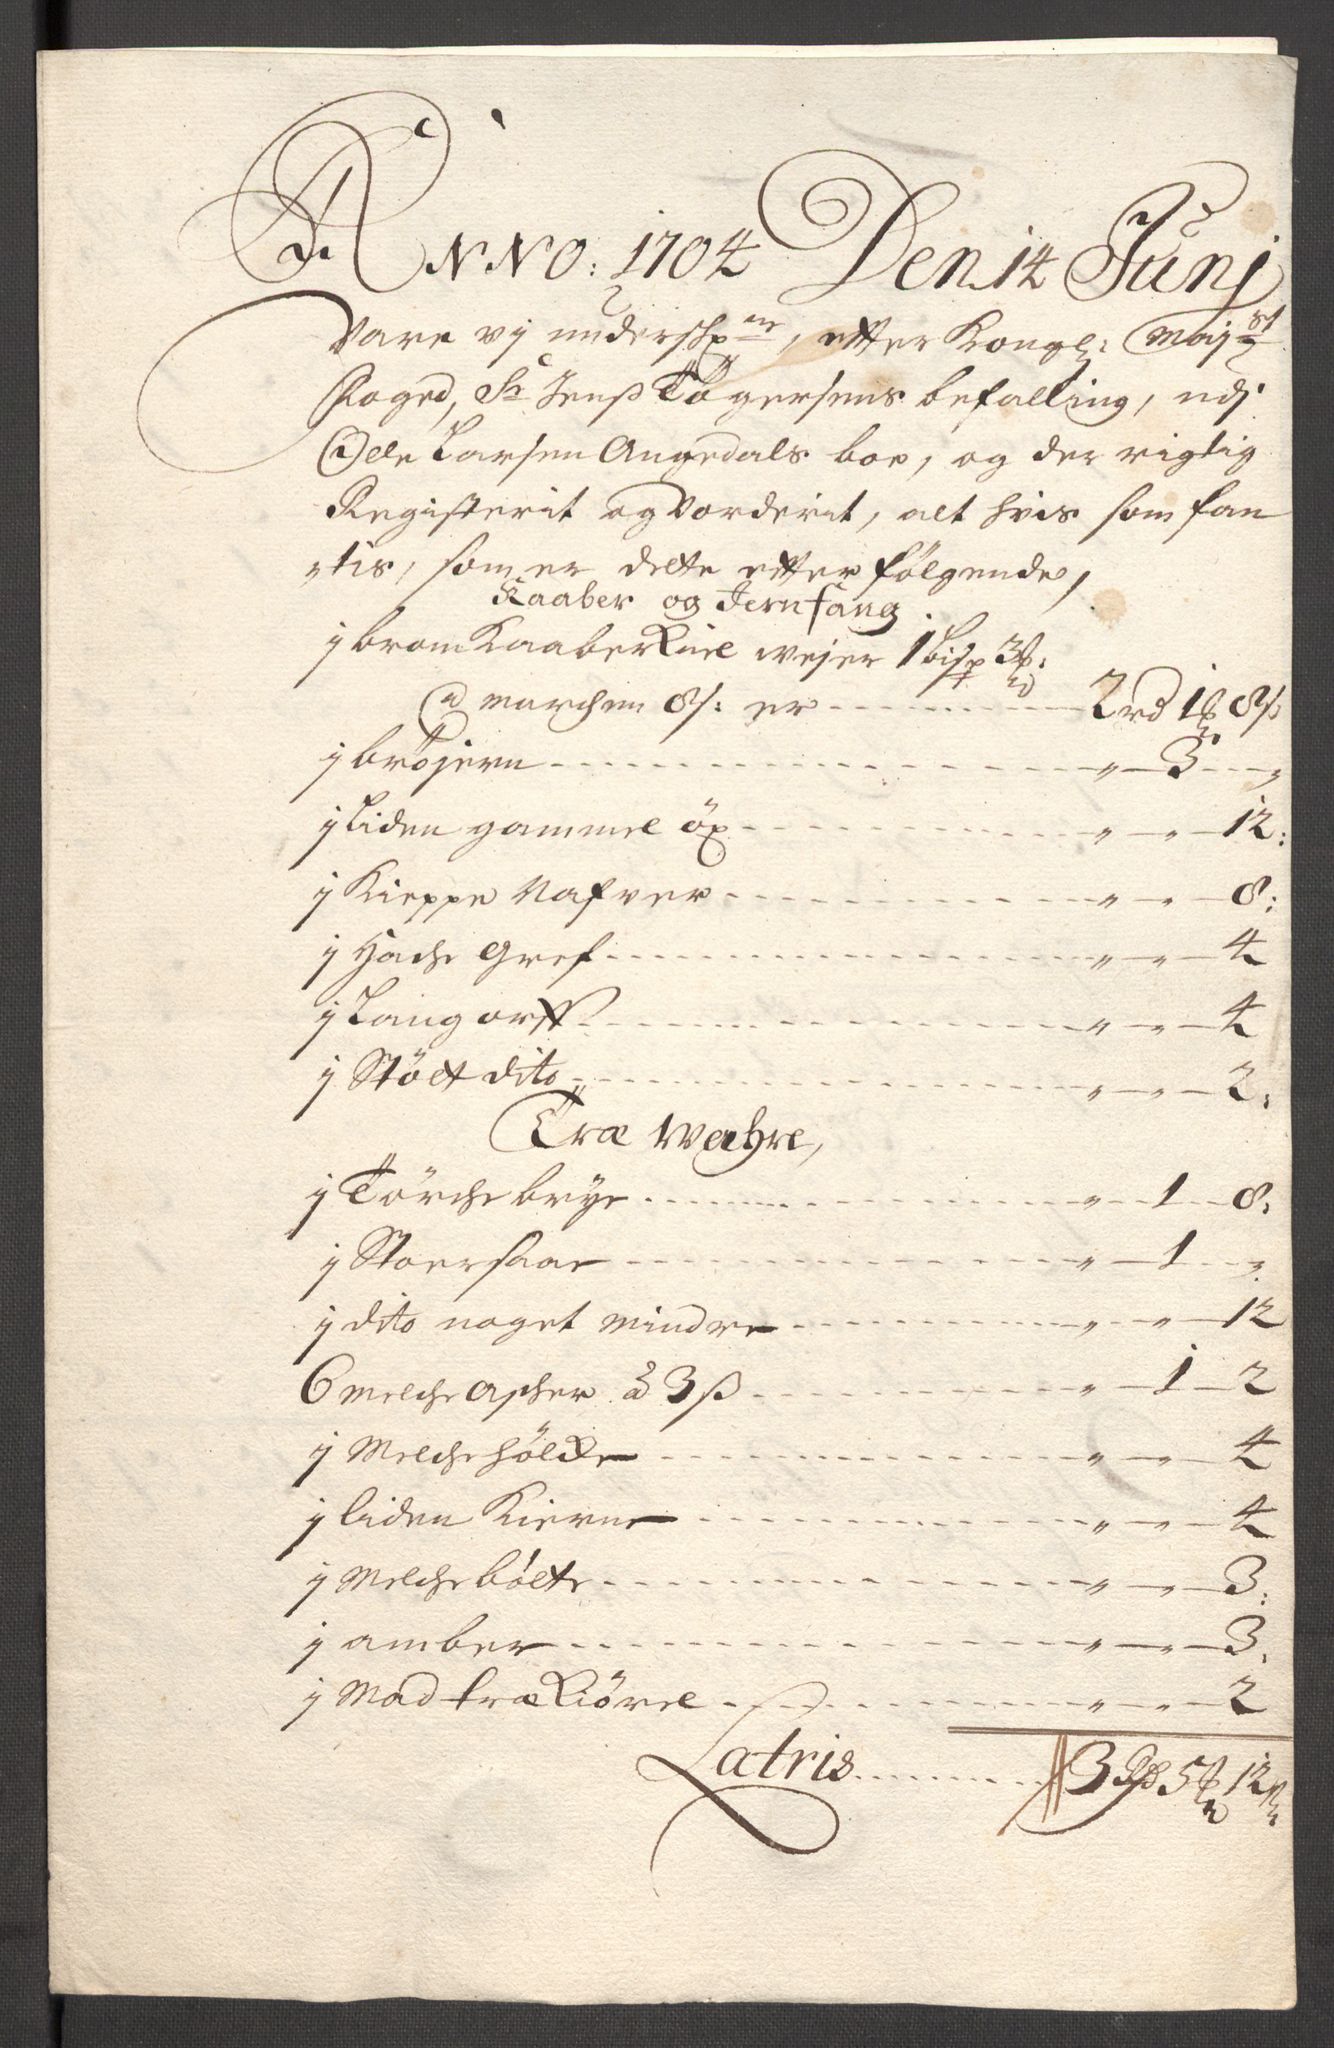 ANNO: 1704 Den 14 Junj
Vare vj underschr ne, etter Kongl: Majst
Foged, Sr Jenß Tøgersens befalling, udj
Olle Larsen Angedals boe, og der rigtig
Registerit og Vorderit, alt hvis som fan
tis, som er dette etter følgende,
Kaaber og Jernfang
j brom Kaaber Kiel wejer 1 bisp 3
a marchen 8ß: er 2 rd 1 8ß
j brøjern " 3 "
j Liden gammel öx " " 12:
j Kieppe Nafver " " 8:
j Hache Gref " " 4
j Lang orff " " 4
j Stött dito " " 2:
Træ Wahre,
j Törche brye " 1 8:
j Stoer saae " 1 "
j dito noget mindre " " 12
6 melche ascher å 3ß " 1 2
j Melche hölcke " " 4
j liden Kierne " " 4
j Melche bötte " " 3:
j amber " " 3.
j Mad træ Kiörel " " 2
Latris 3 Rd 5 12